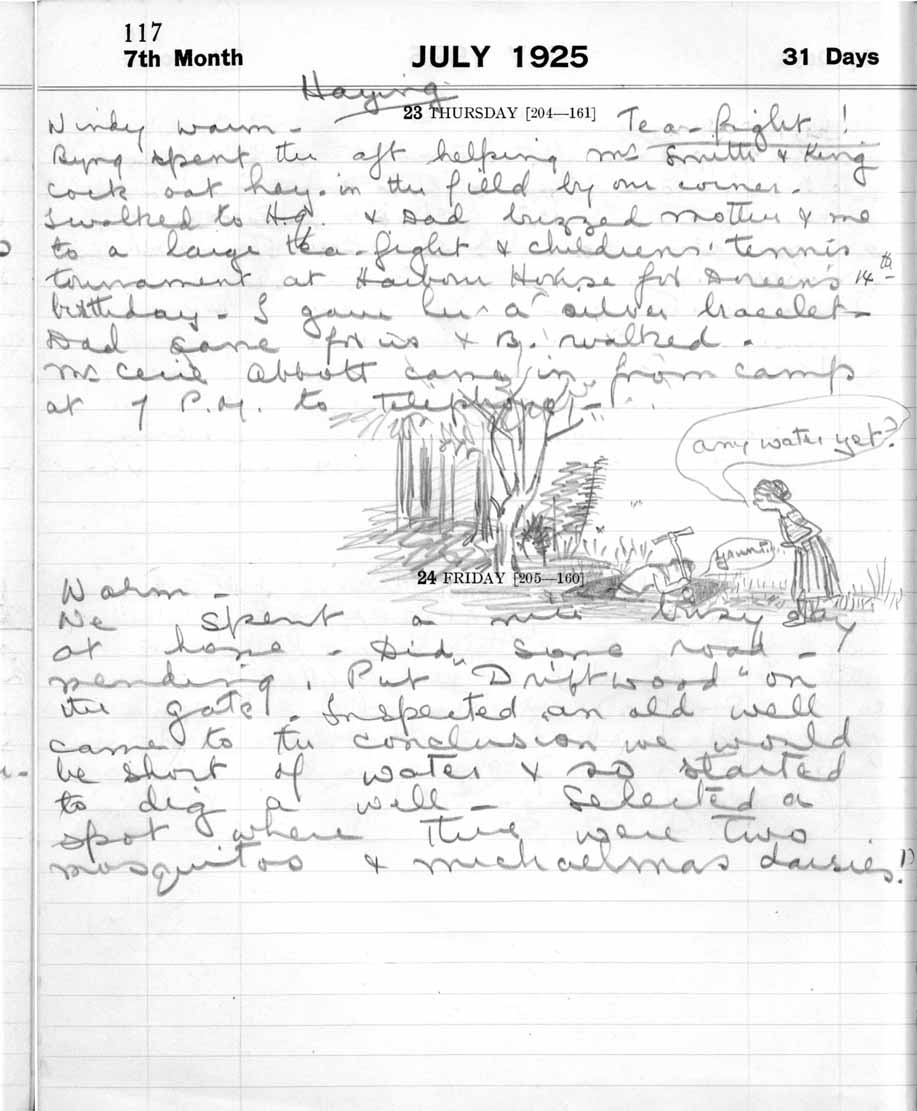 117
7th Month JULY 1925 31 Days
Haying
23 THURSDAY [204—161]
Windy warm - Tea-fight !
Byng spent the aft helping Mr Smith & King
cock oat hay in the field by our corner.
I walked to H.Q. & Dad buzzed Mother & me
to a large tea-fight & childrens' tennis
tournament at Harbour House for Doreen's 14th
birthday - I gave her a silver bracelet -
Dad came for us & B. walked.
Mr Cecil Abbott came in from camp
at 7 P.M. to telephone -
any water yet?
24 FRIDAY [205—160]
Warm -
We spent a nice busy day
at home - Did some road -
mending, Put "Driftwood" on
the gate! - Inspected an old well
came to the conclusion we would
be short of water & so started
to dig a well - Selected a
spot where there were two
mosquitos & michaelmas daisies!!